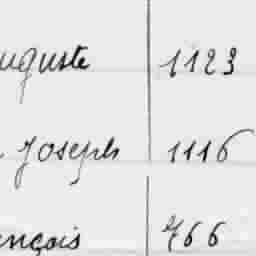 uguste 1123
Joseph 1116
nçois 766